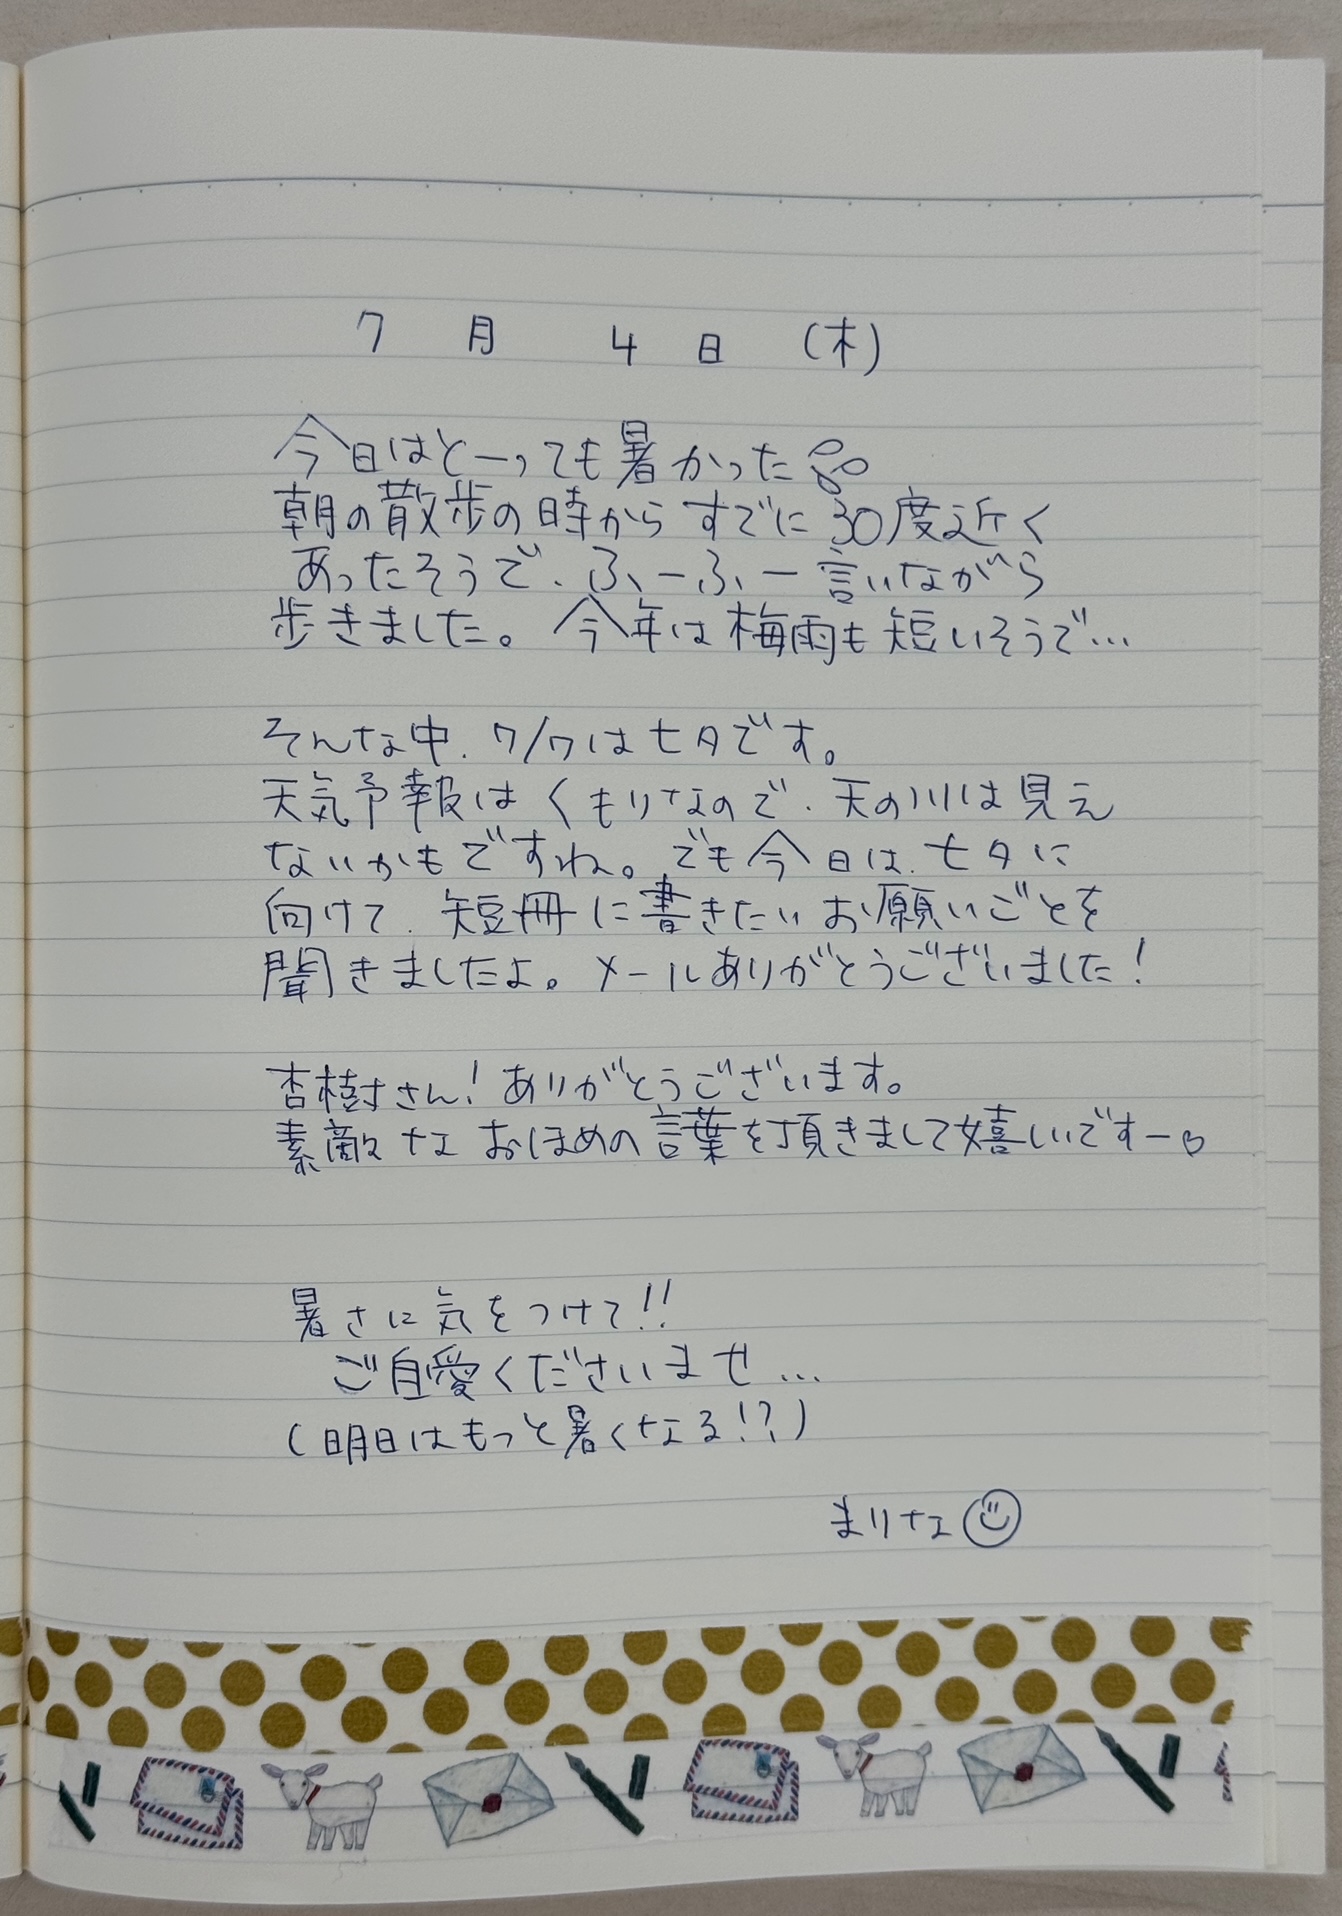 7月 4日 (木)
今日はとーっても暑かった
朝の散歩の時から すでに 30度近く
あったそうで、ふーふー言いながら
歩きました。今年は梅雨も短いそうで…
そんな中、7/7は七夕です。
天気予報はくもりなので、天の川は見え
ないかもですね。でも今日は、七夕に
向けて、短冊に書きたいお願いごとを
聞きましたよ。メールありがとうございました!
杏樹さん!ありがとうございます。
素敵な おほめの言葉を頂きまして嬉しいですー♡
暑さに気をつけて!!
ご自愛くださいませ…
(明日はもっと暑くなる!?)
まりな